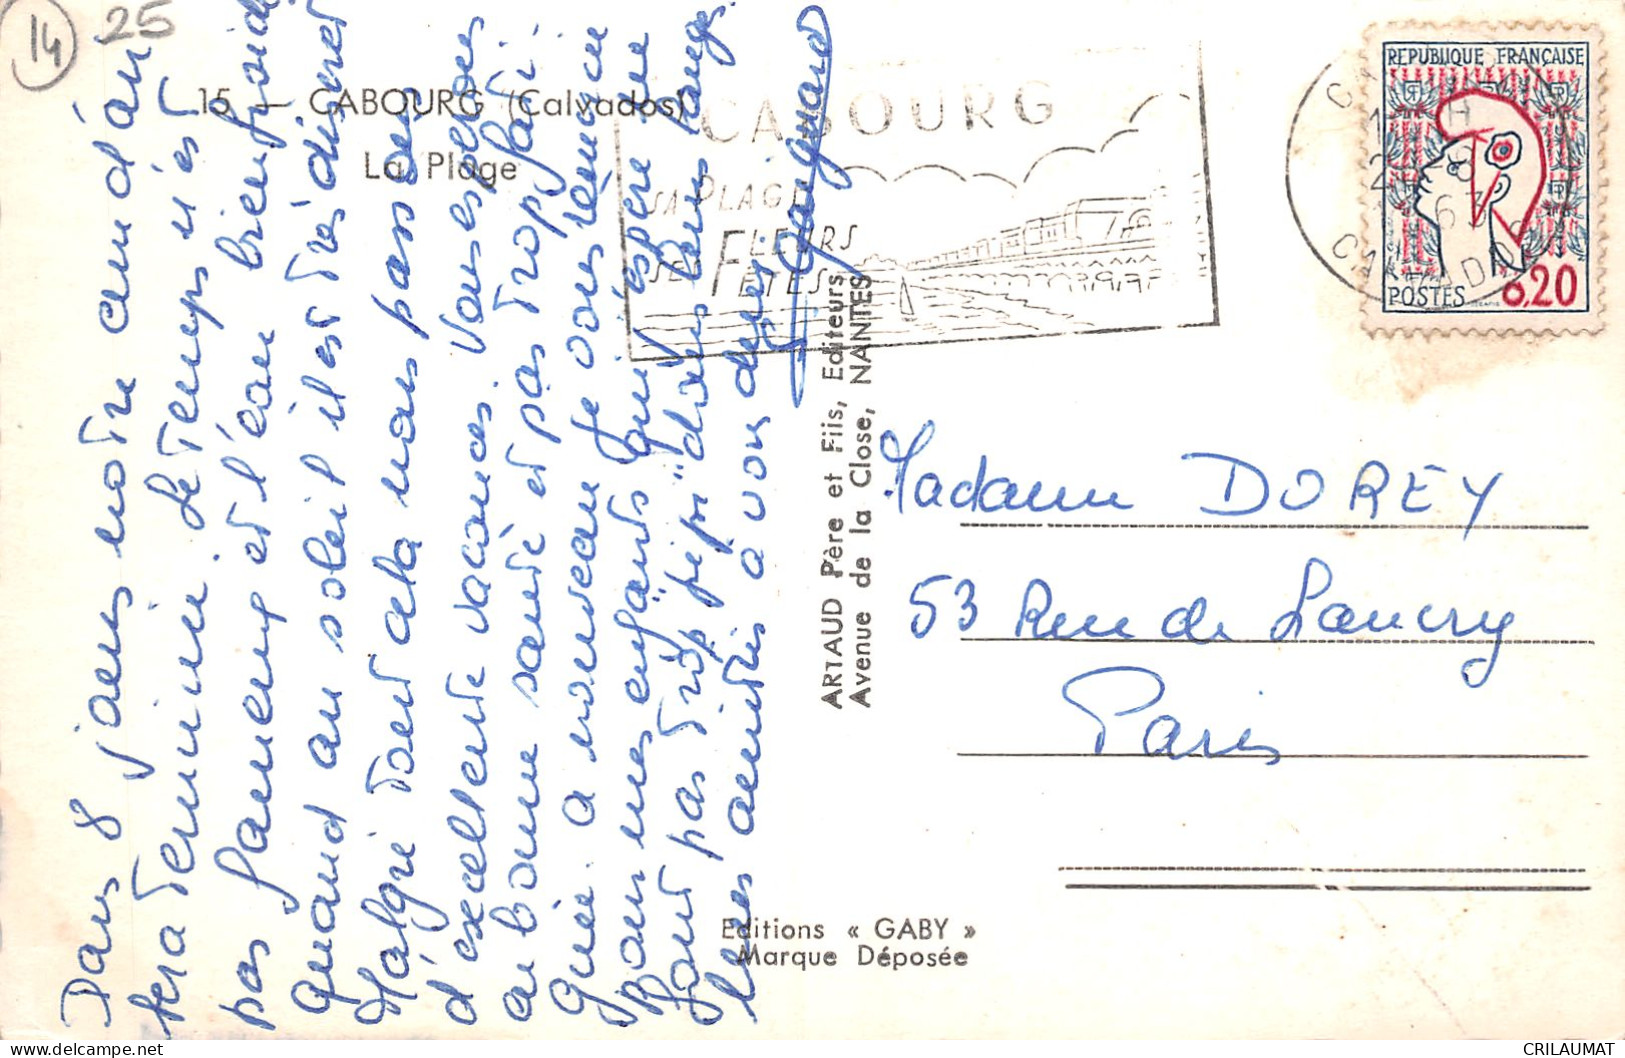 14
25
15 — CABOURG (Calvados)
La Plage
CABOURG
SA PLAGE
SES FLEURS
FÊTES
REPUBLIQUE FRANÇAISE
POSTES 0.20
Dans 8 jours notre cure d'air
sera terminée. Le temps n'est
pas fameux et l'eau bien froide
quand au soleil il est très discret
Malgré tout cela nous passons
d'excellentes vacances. Vous
en bonne santé et pas trop
à nouveau je vous remercie
Pour mes enfants qui j'espère ne
font pas trop pipi "dans leurs langes"
Mes amitiés à vous deux
ARTAUD Père et Fils, Editeurs
Avenue de la Close, NANTES
Madame DOREY
53 Rue de Lancry
Paris
Editions « GABY »
Marque Déposée
CRILAUMAT